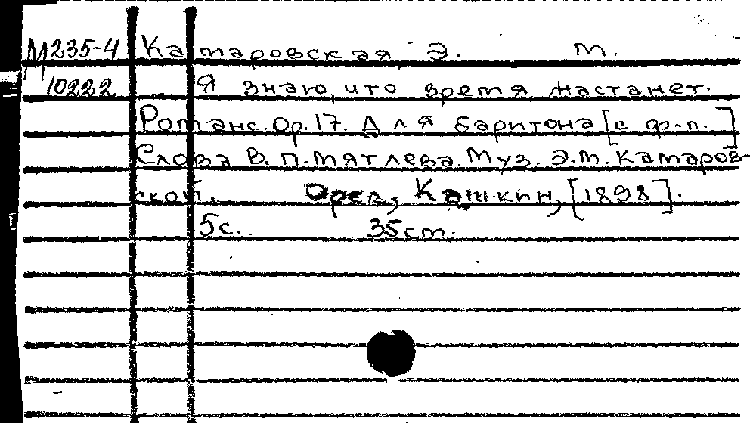 М235-4 Катаровская Э. М.
10222 Я знаю, что время настанет.
Романс. Op. 17. Для баритона [с ф.-п.]
Слова В. П. Мятлева. Муз. Э. М. Катаров-
ской. Орел, Кашкин, [1898].
5с. 35см.